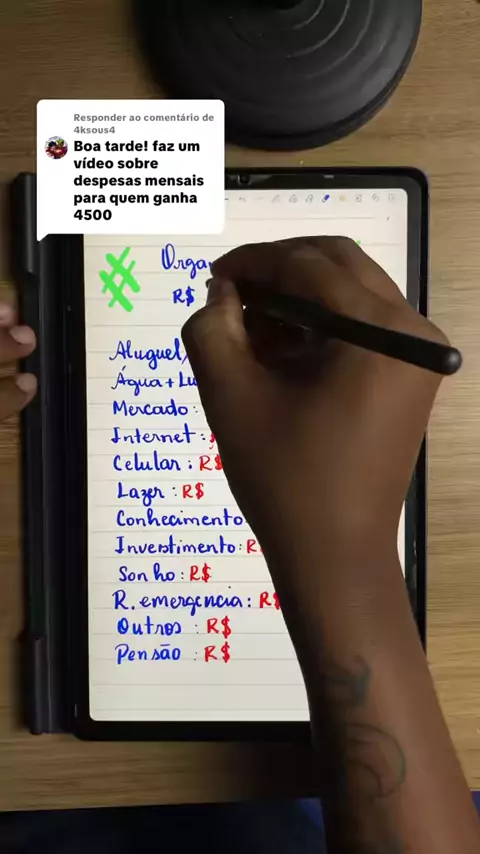 Responder ao comentário de
4ksous4
Boa tarde! faz um
vídeo sobre
despesas mensais
para quem ganha
4500
#
R$
Aluguel
Água + Lu
Mercado:
Internet:
Celular: R$
Lazer: R$
Conhecimento
Investimento: R
Sonho: R$
R. emergencia: R$
Outros: R$
Pensão: R$